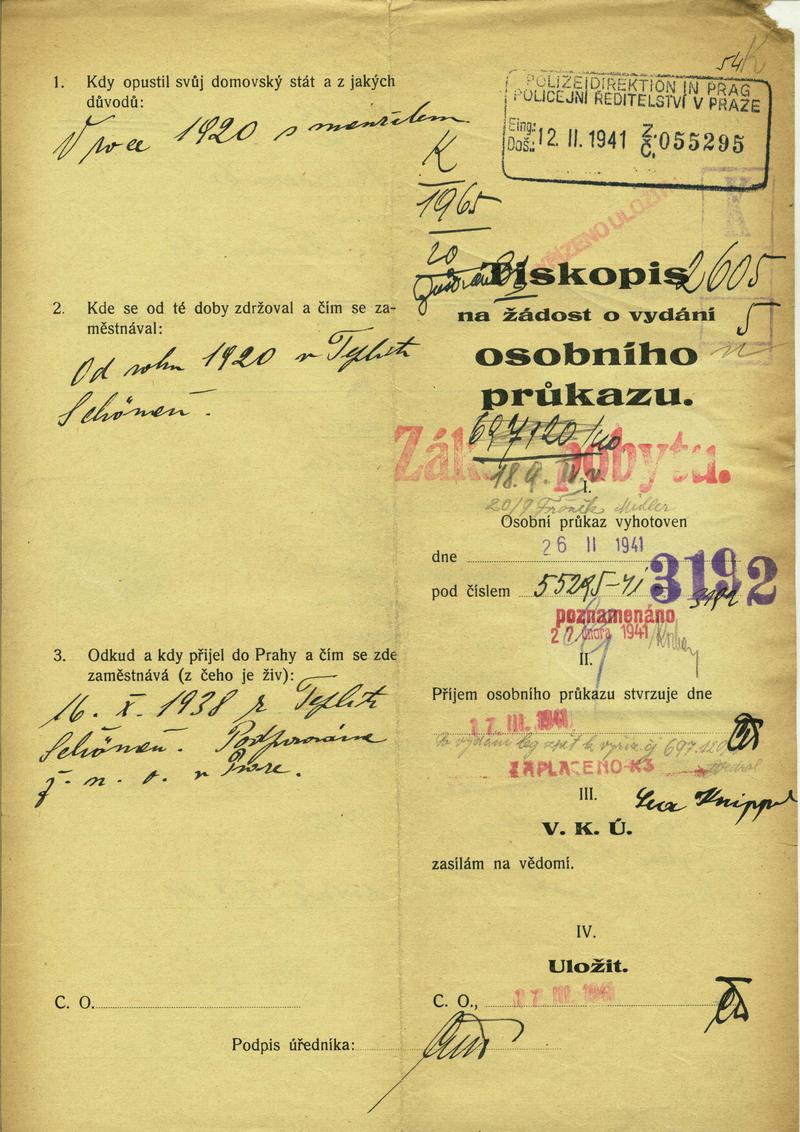 1. Kdy opustil svůj domovský stát a z jakých
důvodů:
V roce 1920 s manželem
2. Kde se od té doby zdržoval a čím se za-
městnával:
Od roku 1920 v Teplitz
Schönau.
3. Odkud a kdy přijel do Prahy a čím se zde
zaměstnává (z čeho je živ):
16. X. 1938 z Teplitz
Schönau. Podporována
ž. n. o. v Praze.
C. O.
Podpis úředníka:
54
POLIZEIDIREKTION IN PRAG
POLICEJNÍ ŘEDITELSTVÍ V PRAZE
Eing.:
Doš.: 12. II. 1941 Z. Č. 055295
K
1965
20
K
Tiskopis 2605
na žádost o vydání 5
osobního
průkazu.
697120/40
Zák. pobytu.
18.9.
I.
20/9
Osobní průkaz vyhotoven
dne 26 II 1941
pod číslem 55295-41 3192
3192
poznamenáno
27. února 1941
II.
Příjem osobního průkazu stvrzuje dne
17. III. 1941
697.120
ZAPLACENO K3
III.
V. K. Ú.
zasílám na vědomí.
IV.
Uložit.
C. O., 17. III. 1941